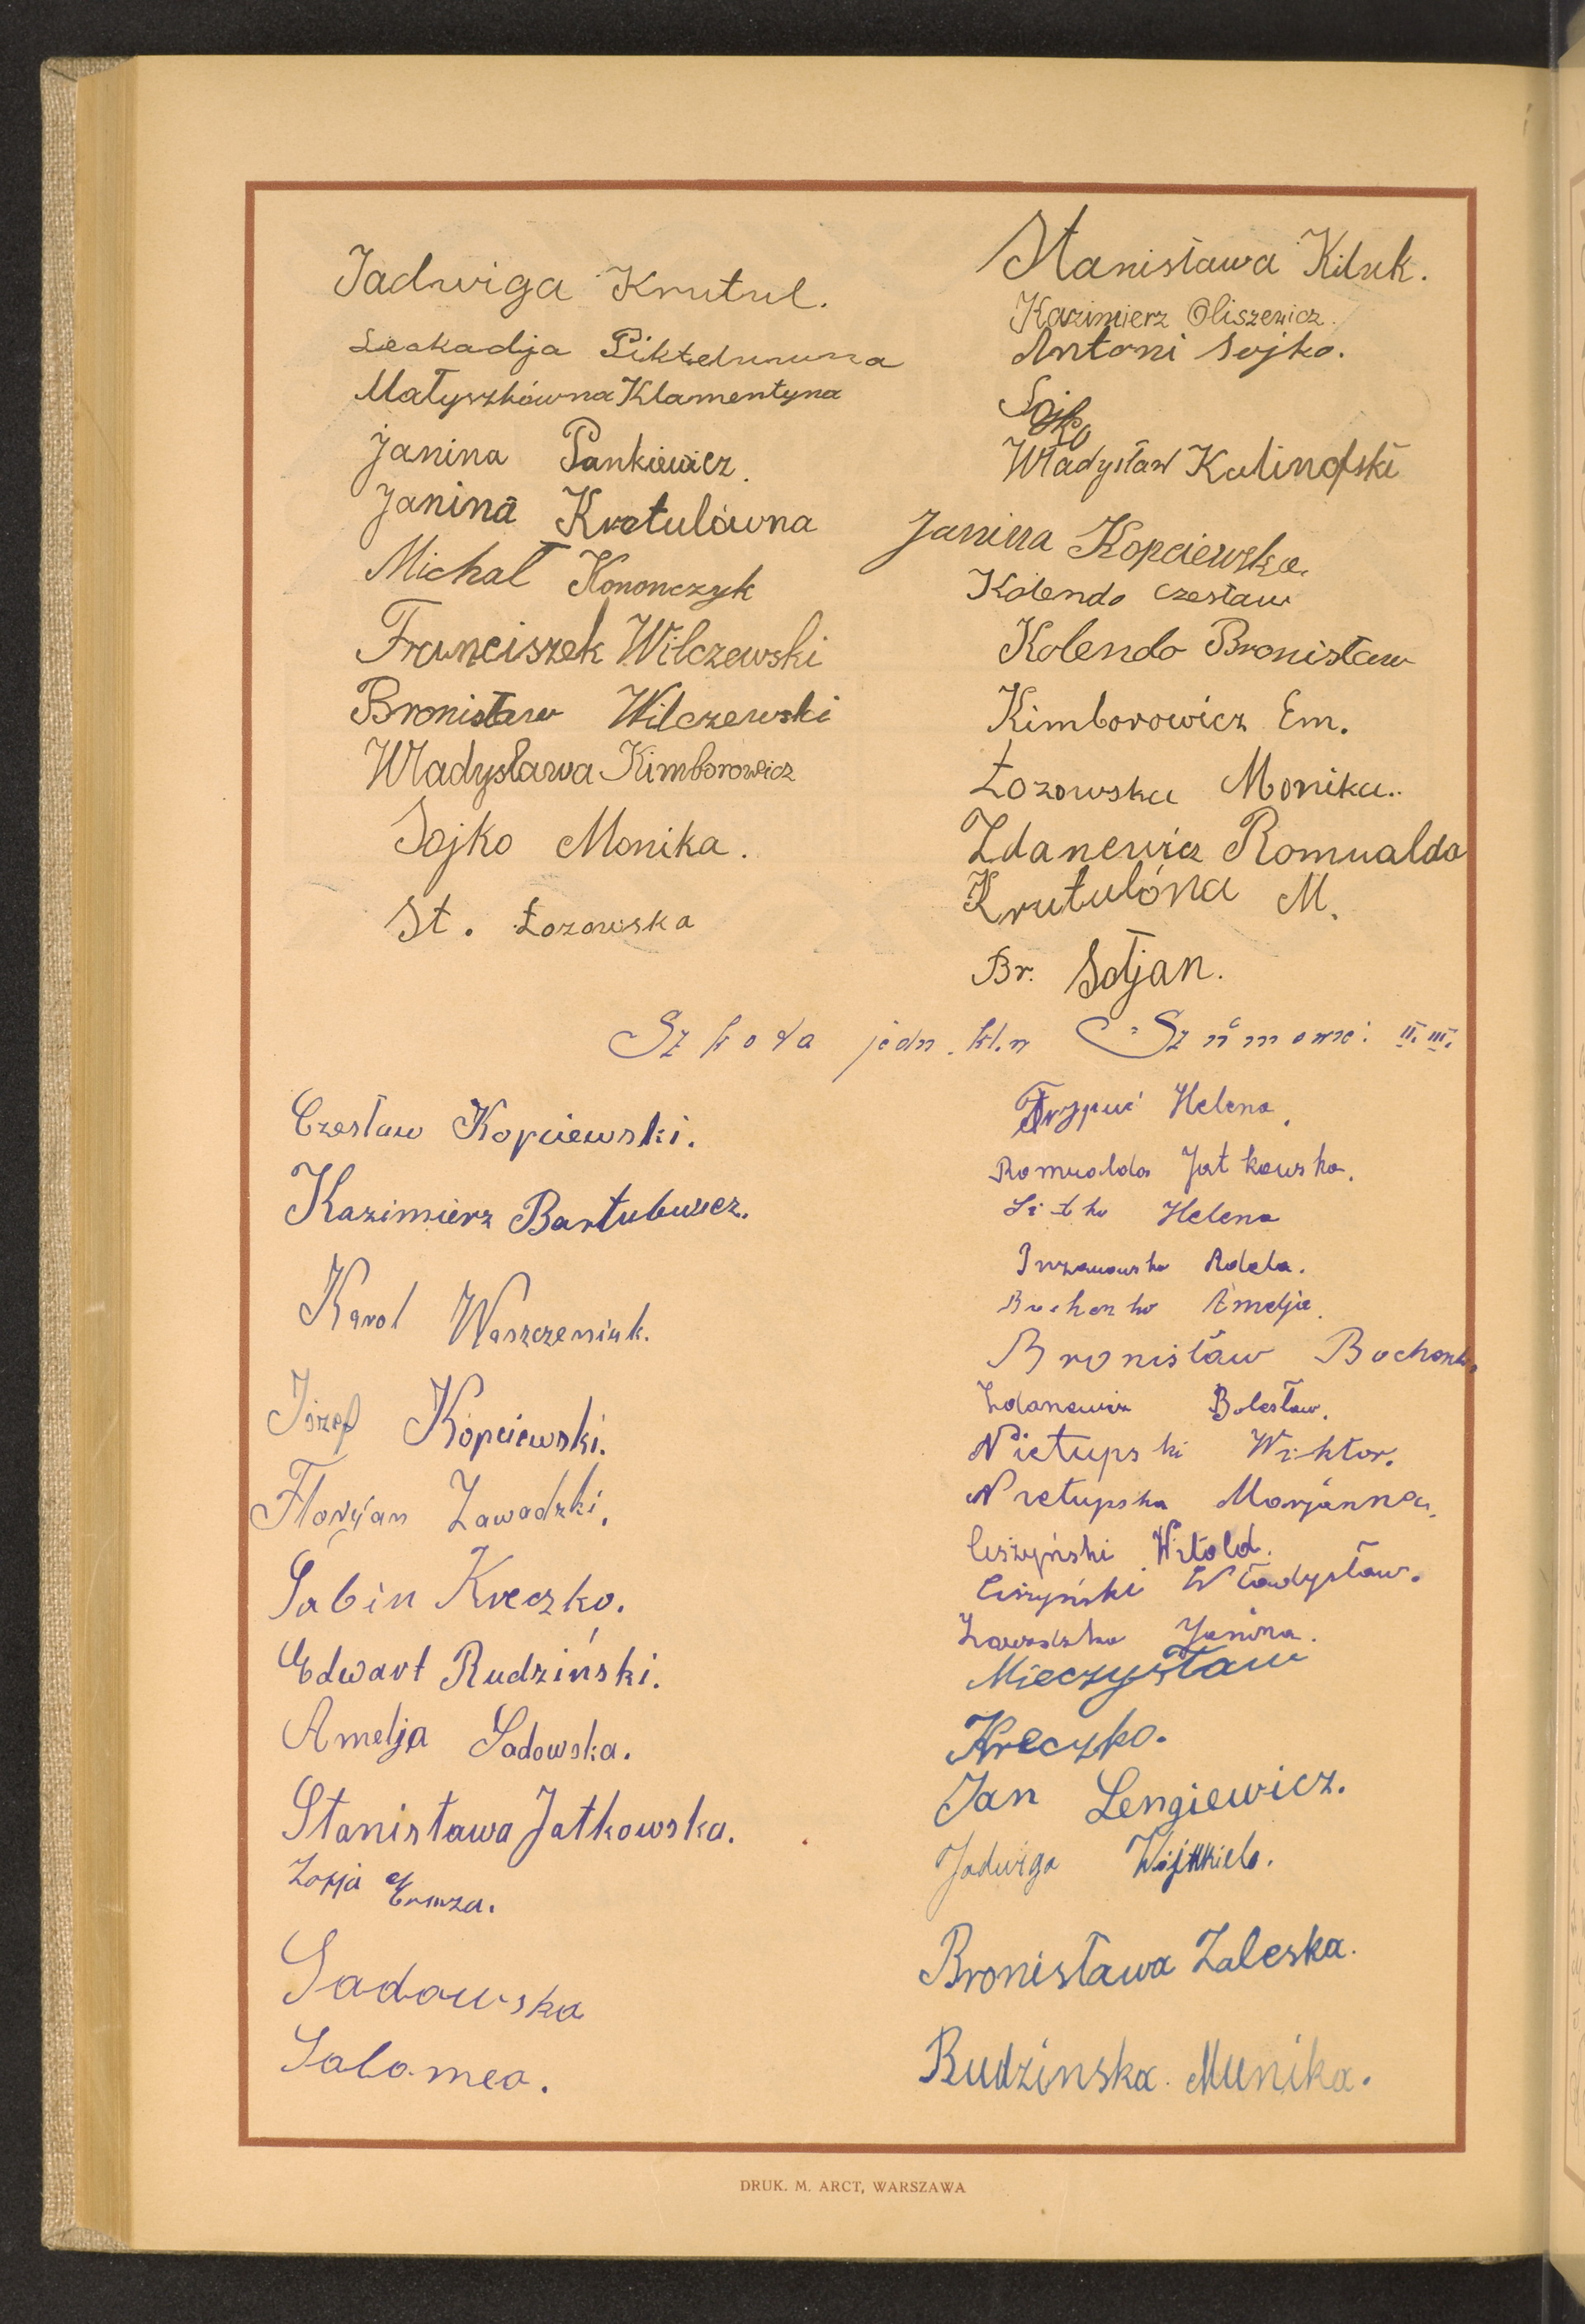 Jadwiga Krutul.
Leokadja
Matyszkówna Klamentyna
Janina Pankiewicz.
Janina Krutulówna
Michał Kononczyk
Franciszek Wilczewski
Bronisław Wilczewski
Władysława Kimborowicz
Sojko Monika.
St. Łozowska
Stanisława Kiluk.
Kazimierz Oliszewicz.
Antoni Sojko.
Sojko
Władysław Kalinofski
Janina Kopciewska.
Kolendo Czesław
Kolendo Bronisław
Kimborowicz Em.
Łozowska Monika..
Zdanewicz Romualda
Krutulóna M.
Br. Sotjan.
Szkoła jedn. kl. II. III.
Czesław Kopciewski.
Kazimierz
Karol Waszczeniuk.
Józef Kopciewski.
Florjan Zawadzki.
Sabin Kreczko.
Edwart Rudziński.
Amelja Sadowska.
Stanisława Jatkowska.
Zofja
Sadowska
Salomea.
Helena.
Romualda Jatkowska.
Helena
Adela.
Amelja.
Bronisław Bochenko
Zdanewicz Bolesław.
Nietupski Wiktor.
Nietupska Marjanna.
Ciszyński Witold.
Ciszyński Władysław.
Zawadzka Janina.
Mieczysław
Kreczko.
Jan Lengiewicz.
Jadwiga
Bronisława Zaleska.
Rudzinska. Munika.
DRUK. M. ARCT, WARSZAWA